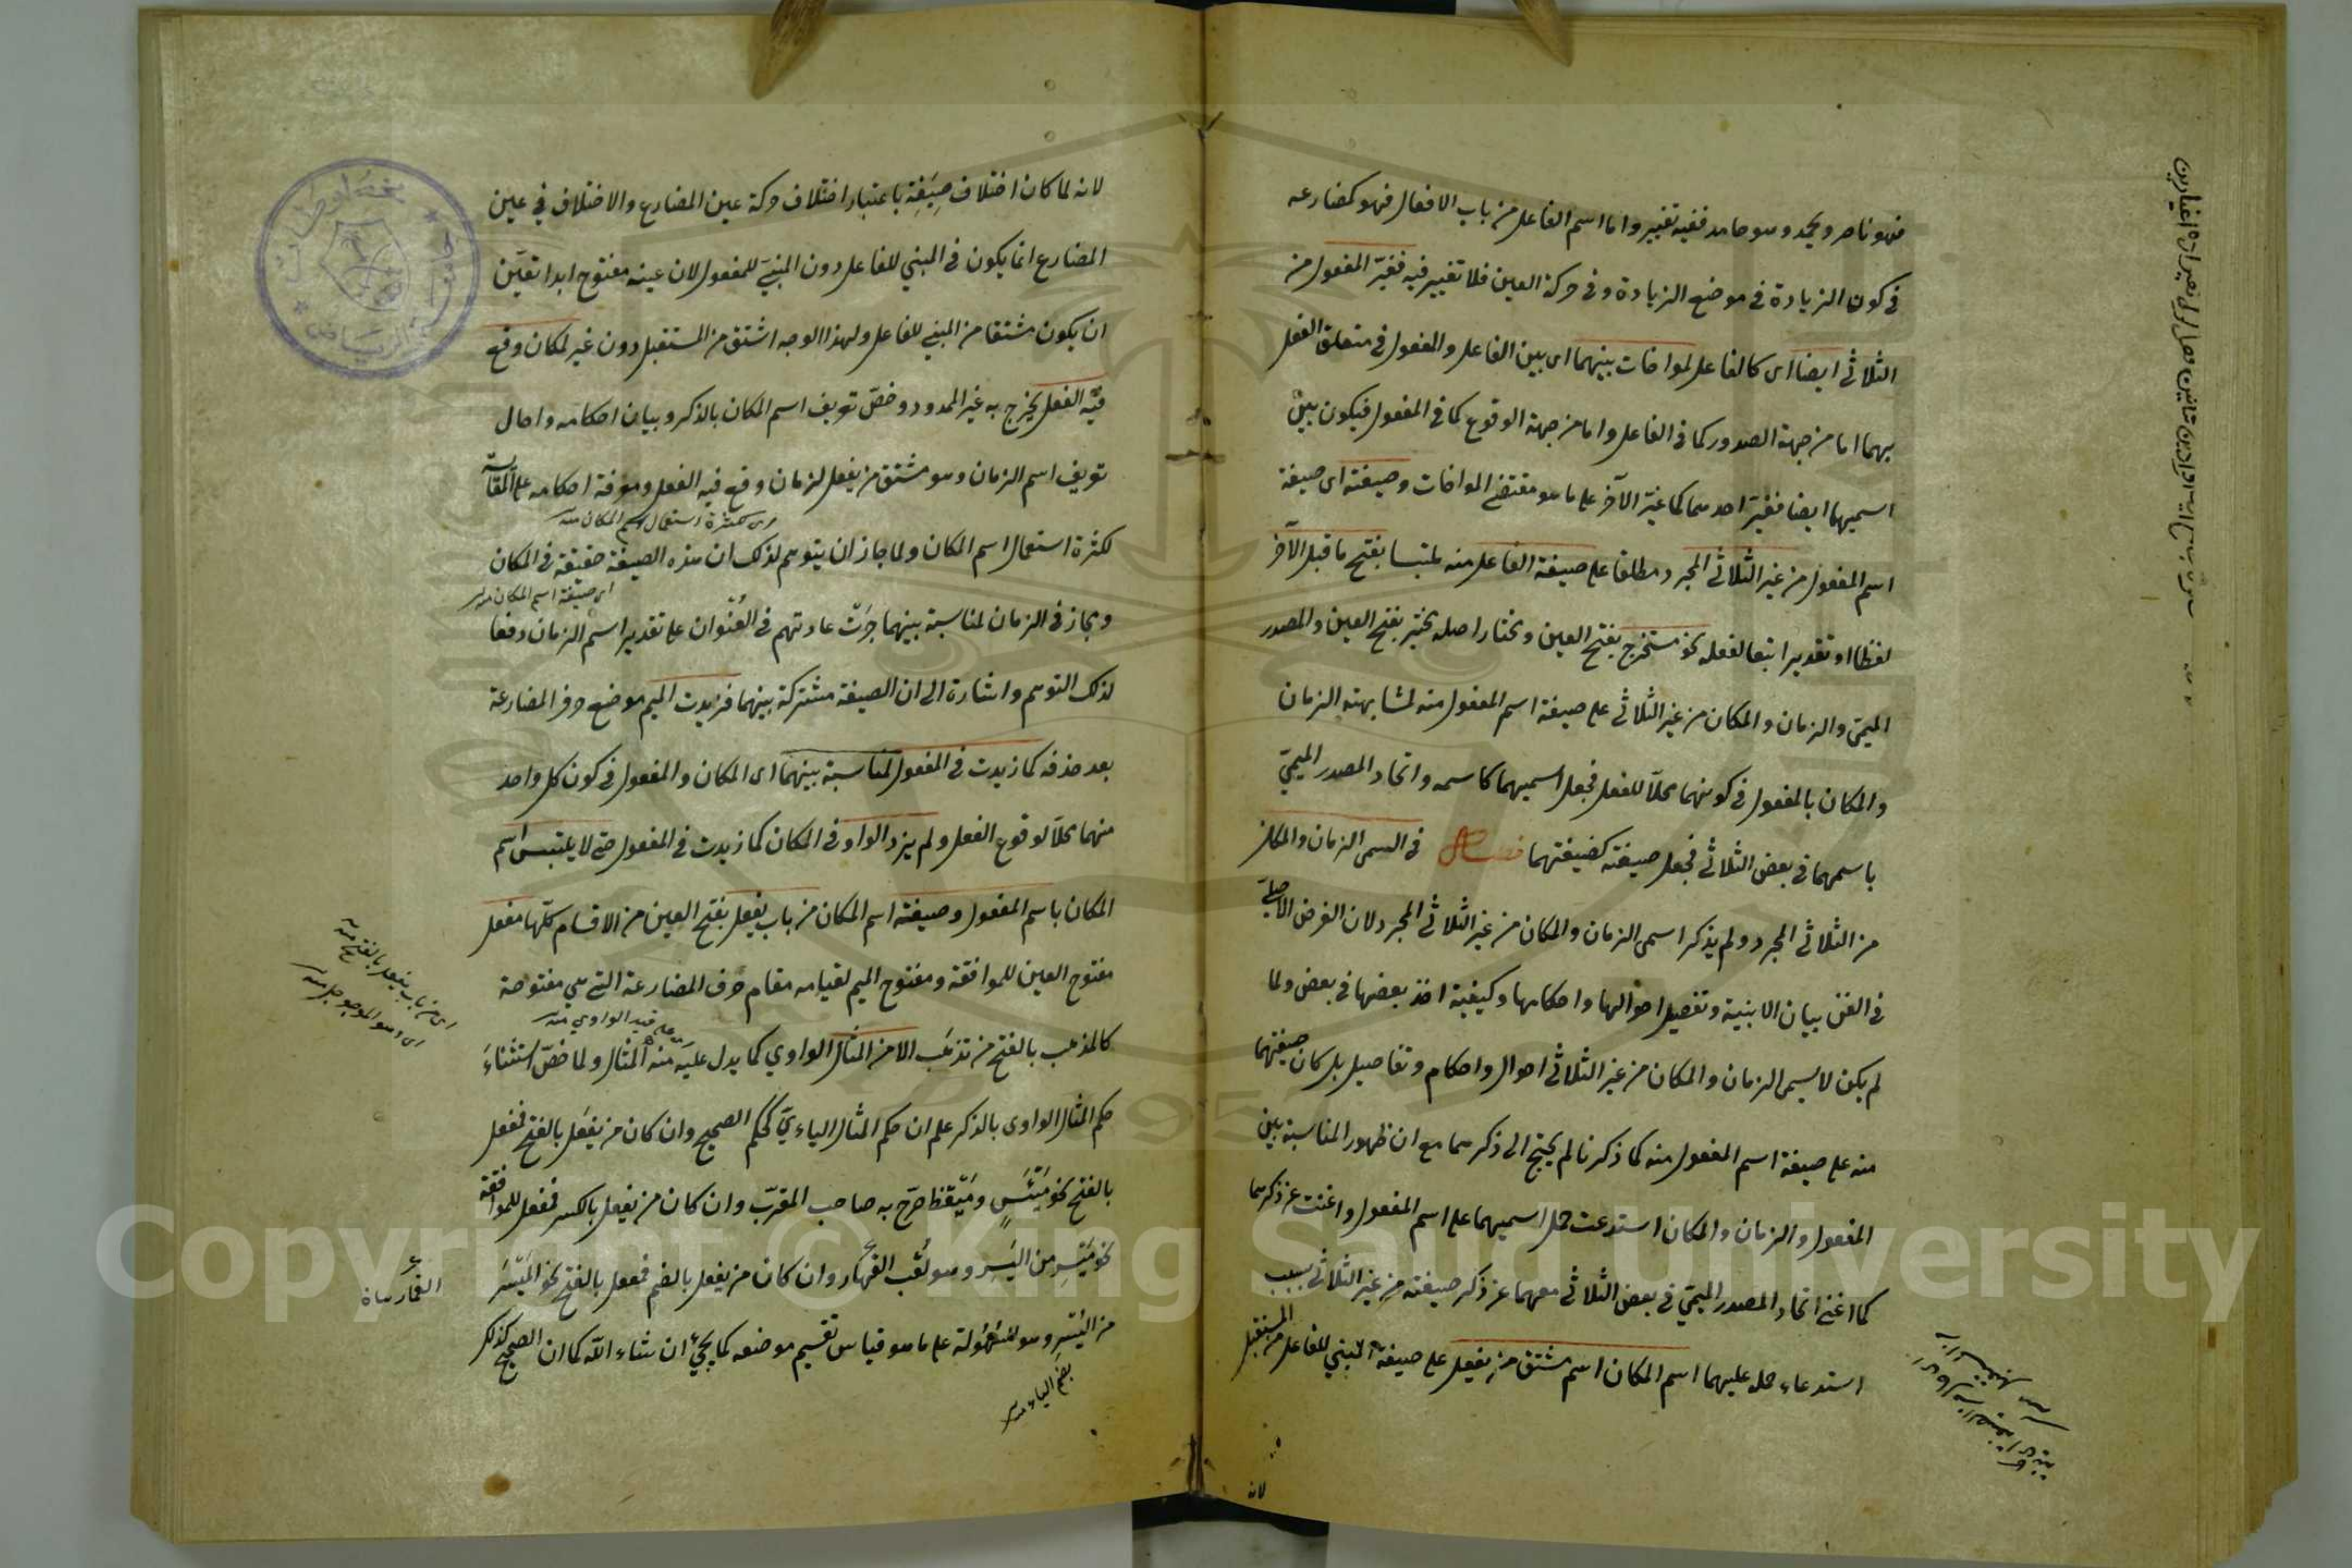 فهو ناصر ويحمد وهو حامد ففيه تغيير واما اسم الفاعل من باب الافعال فهو كمضارعه
في كون الزيادة في موضع الزيادة وفي حركة العين فلا تغيير فيه فغيّر المفعول من
الثلاثي ايضا اى كالفاعل لمواخات بينهما اى بين الفاعل والمفعول في متعلق الفعل
بهما اما من جهة الصدور كما في الفاعل واما من جهة الوقوع كما في المفعول فيكون بين
اسميهما ايضا فغيّر احدهما كما غيّر الآخر على ما هو مقتضى المواخات وصيغته اى صيغة
اسم المفعول من غير الثلاثي المجرد مطلقا على صيغة الفاعل منه ملتبسا بفتح ما قبل الآخر
لفظا او تقديرا تبعا لفعله نحو مستخرج بفتح العين ومختار اصله مختير بفتح العين والمصدر
الميمي والزمان والمكان من غير الثلاثي على صيغة اسم المفعول منه لمشابهته الزمان
والمكان بالمفعول في كونهما محلّا للفعل فجعل اسميهما كاسمه واتحاد المصدر الميميّ
باسمهما في بعض الثلاثي فجعل صيغته كصيغتهما فصل في اسمى الزمان والمكان
من الثلاثي المجرد ولم يذكر اسمى الزمان والمكان من غير الثلاثي المجرد لان الغرض الاصليّ
في الفن بيان الابنية وتفصيل احوالها واحكامها وكيفية اخذ بعضها في بعض ولما
لم يكن لاسمى الزمان والمكان من غير الثلاثي احوال واحكام وتفاصيل بل كان صيغتهما
منه على صيغة اسم المفعول منه كما ذكرنا لم يحتج الى ذكرهما مع ان ظهور المناسبة بين
المفعول والزمان والمكان استدعت حمل اسميهما على اسم المفعول واغنت عن ذكرهما
كما اغنى اتحاد المصدر الميمي في بعض الثلاثي معهما عن ذكر صيغته من غير الثلاثي بسبب
استدعاء حمله عليهما اسم المكان اسم مشتق من يفعل على صيغة المبني للفاعل من المستقبل
لانه
لانه لما كان اختلاف صِيَغِه باعتبار اختلاف حركة عين المضارع والاختلاف في عين
المضارع انما يكون في المبني للفاعل دون المبنيّ للمفعول لان عينه مفتوح ابدا تعيّن
ان يكون مشتقا من المبني للفاعل ولهذا الوجه اشتق من المستقبل دون غير لمكان وقع
فيه الفعل يخرج به غير المحدود وخصّ تعريف اسم المكان بالذكر وبيان احكامه واحال
تعريف اسم الزمان وهو مشتق من يفعل لزمان وقع فيه الفعل ومعرفة احكامه على المقايسة
اى كثرة استعمال اسم المكان منه
لكثرة استعمال اسم المكان ولما جاز ان يتوهم لذلك ان هذه الصيغة حقيقة في المكان
اى صيغة اسم المكان منه
ومجاز في الزمان لمناسبة بينهما جرَت عادتهم في العُنْوان على تقدير اسم الزمان دفعا
لذلك التوهم واشارة الى ان الصيغة مشتركة بينهما فزيدت الميم موضع حرف المضارعة
بعد حذفه كما زيدت في المفعول لمناسبة بينهما اى المكان والمفعول في كون كل واحد
منهما محلّا لوقوع الفعل ولم يزد الواو في المكان كما زيدت في المفعول حتى لا يلتبس اسم
المكان باسم المفعول وصيغة اسم المكان من باب يفعل بفتح العين من الاقسام كلّها مفعل
مفتوح العين للموافقة ومفتوح الميم لقيامه مقام حرف المضارعة التي هي مفتوحة
على قيد الواوي منه
كالمذهب بالفتح من تذهَب الا من المثال الواوي كما يدل عليه منه المثال ولما خصّ استثناءَ
حكم المثال الواوى بالذكر علم ان حكم المثال الياءيّ كحكم الصحيح وان كان من يفعَل بالفتح فمفعل
بالفتح نحو مَيْئَسٍ ومَيْقَظ صَرّح به صاحب المقرّب وان كان من يفعِل بالكسر فمفعل للموافقة
نحو مَيْسِر من اليَسِر وهو لَعْب القمار وان كان من يفعل بالضم فمفعل بالفتح نحو المَيْسَر
من اليُسْر وهو السُهُولة على ما هو قياس تقسيم موضعه كما يجيء ان شاء الله كما ان الصحيح كذلك
بضم الياء منه
اى من باب يفعل بالفتح منه
Copyright © King Saud University
1957